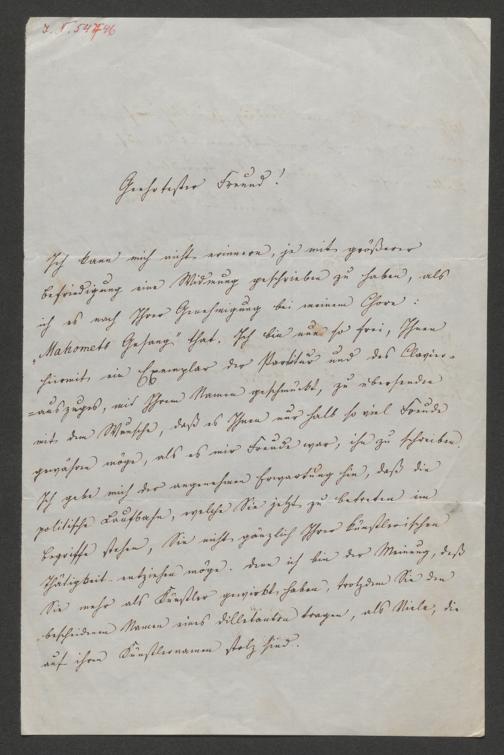 I. N. 54746
Geehrtester Freund!
Ich kann mich nicht erinnern, je mit größerer
Befriedigung eine Widmung geschrieben zu haben, als
ich es nach Ihrer Genehmigung bei meinem Chore:
„Mahomets Gesang" that. Ich bin nun so frei, Ihnen
hiermit ein Exemplar der Partitur und des Clavier-
=auszuges, mit Ihrem Namen geschmückt, zu übersenden
mit dem Wunsche, daß es Ihnen nur halb so viel Freude
gewähren möge, als es mir Freude war, ihn zu schreiben.
Ich gebe mich der angenehmen Erwartung hin, daß die
politische Laufbahn, welche Sie jetzt zu betreten im
Begriffe stehen, Sie nicht gänzlich Ihrer künstlerischen
Thätigkeit entziehen möge. denn ich bin der Meinung, daß
Sie mehr als Künstler gewirkt haben, trotzdem Sie den
bescheidenen Namen eines Dilletanten tragen, als Viele, die
auf ihren Künstlernamen stolz sind.